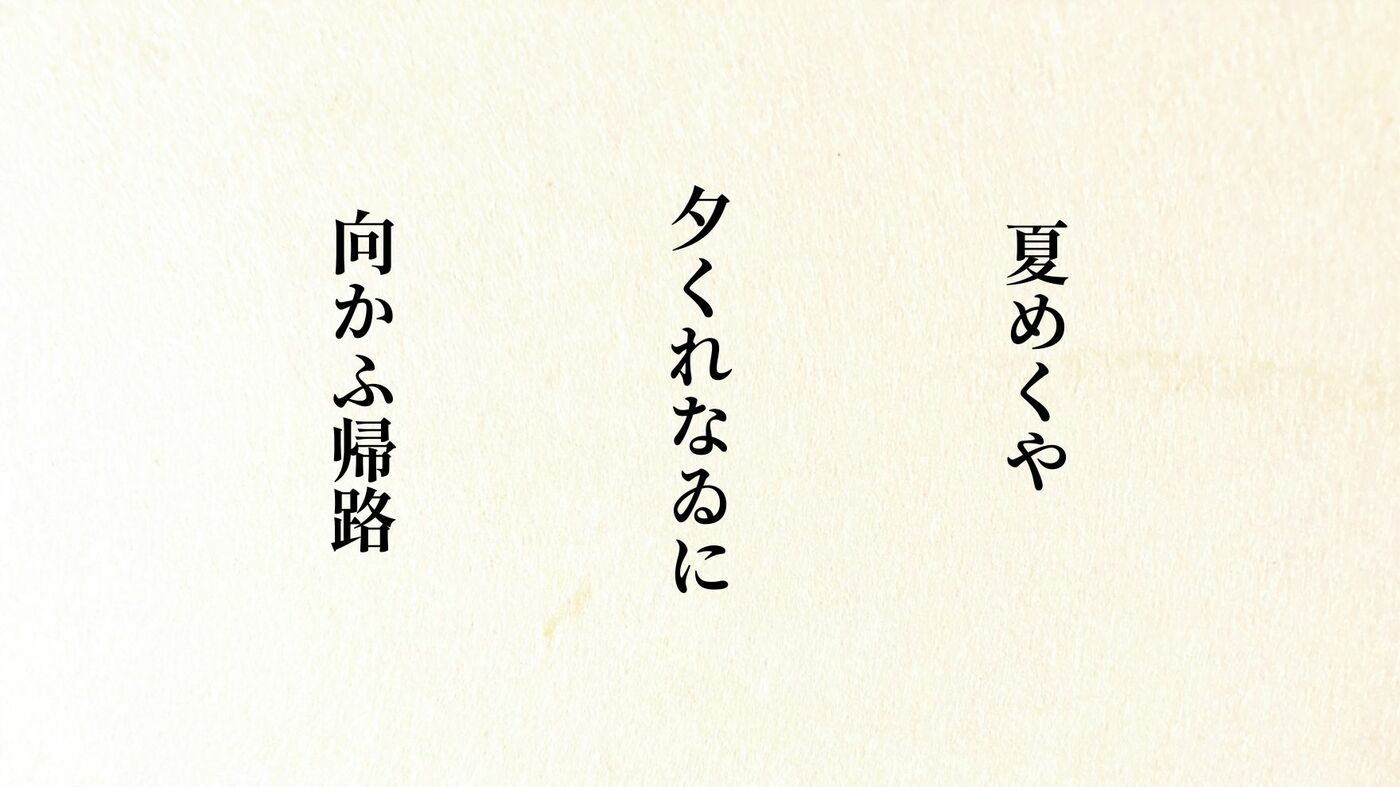 夏めくや
夕くれなゐに
向かふ帰路